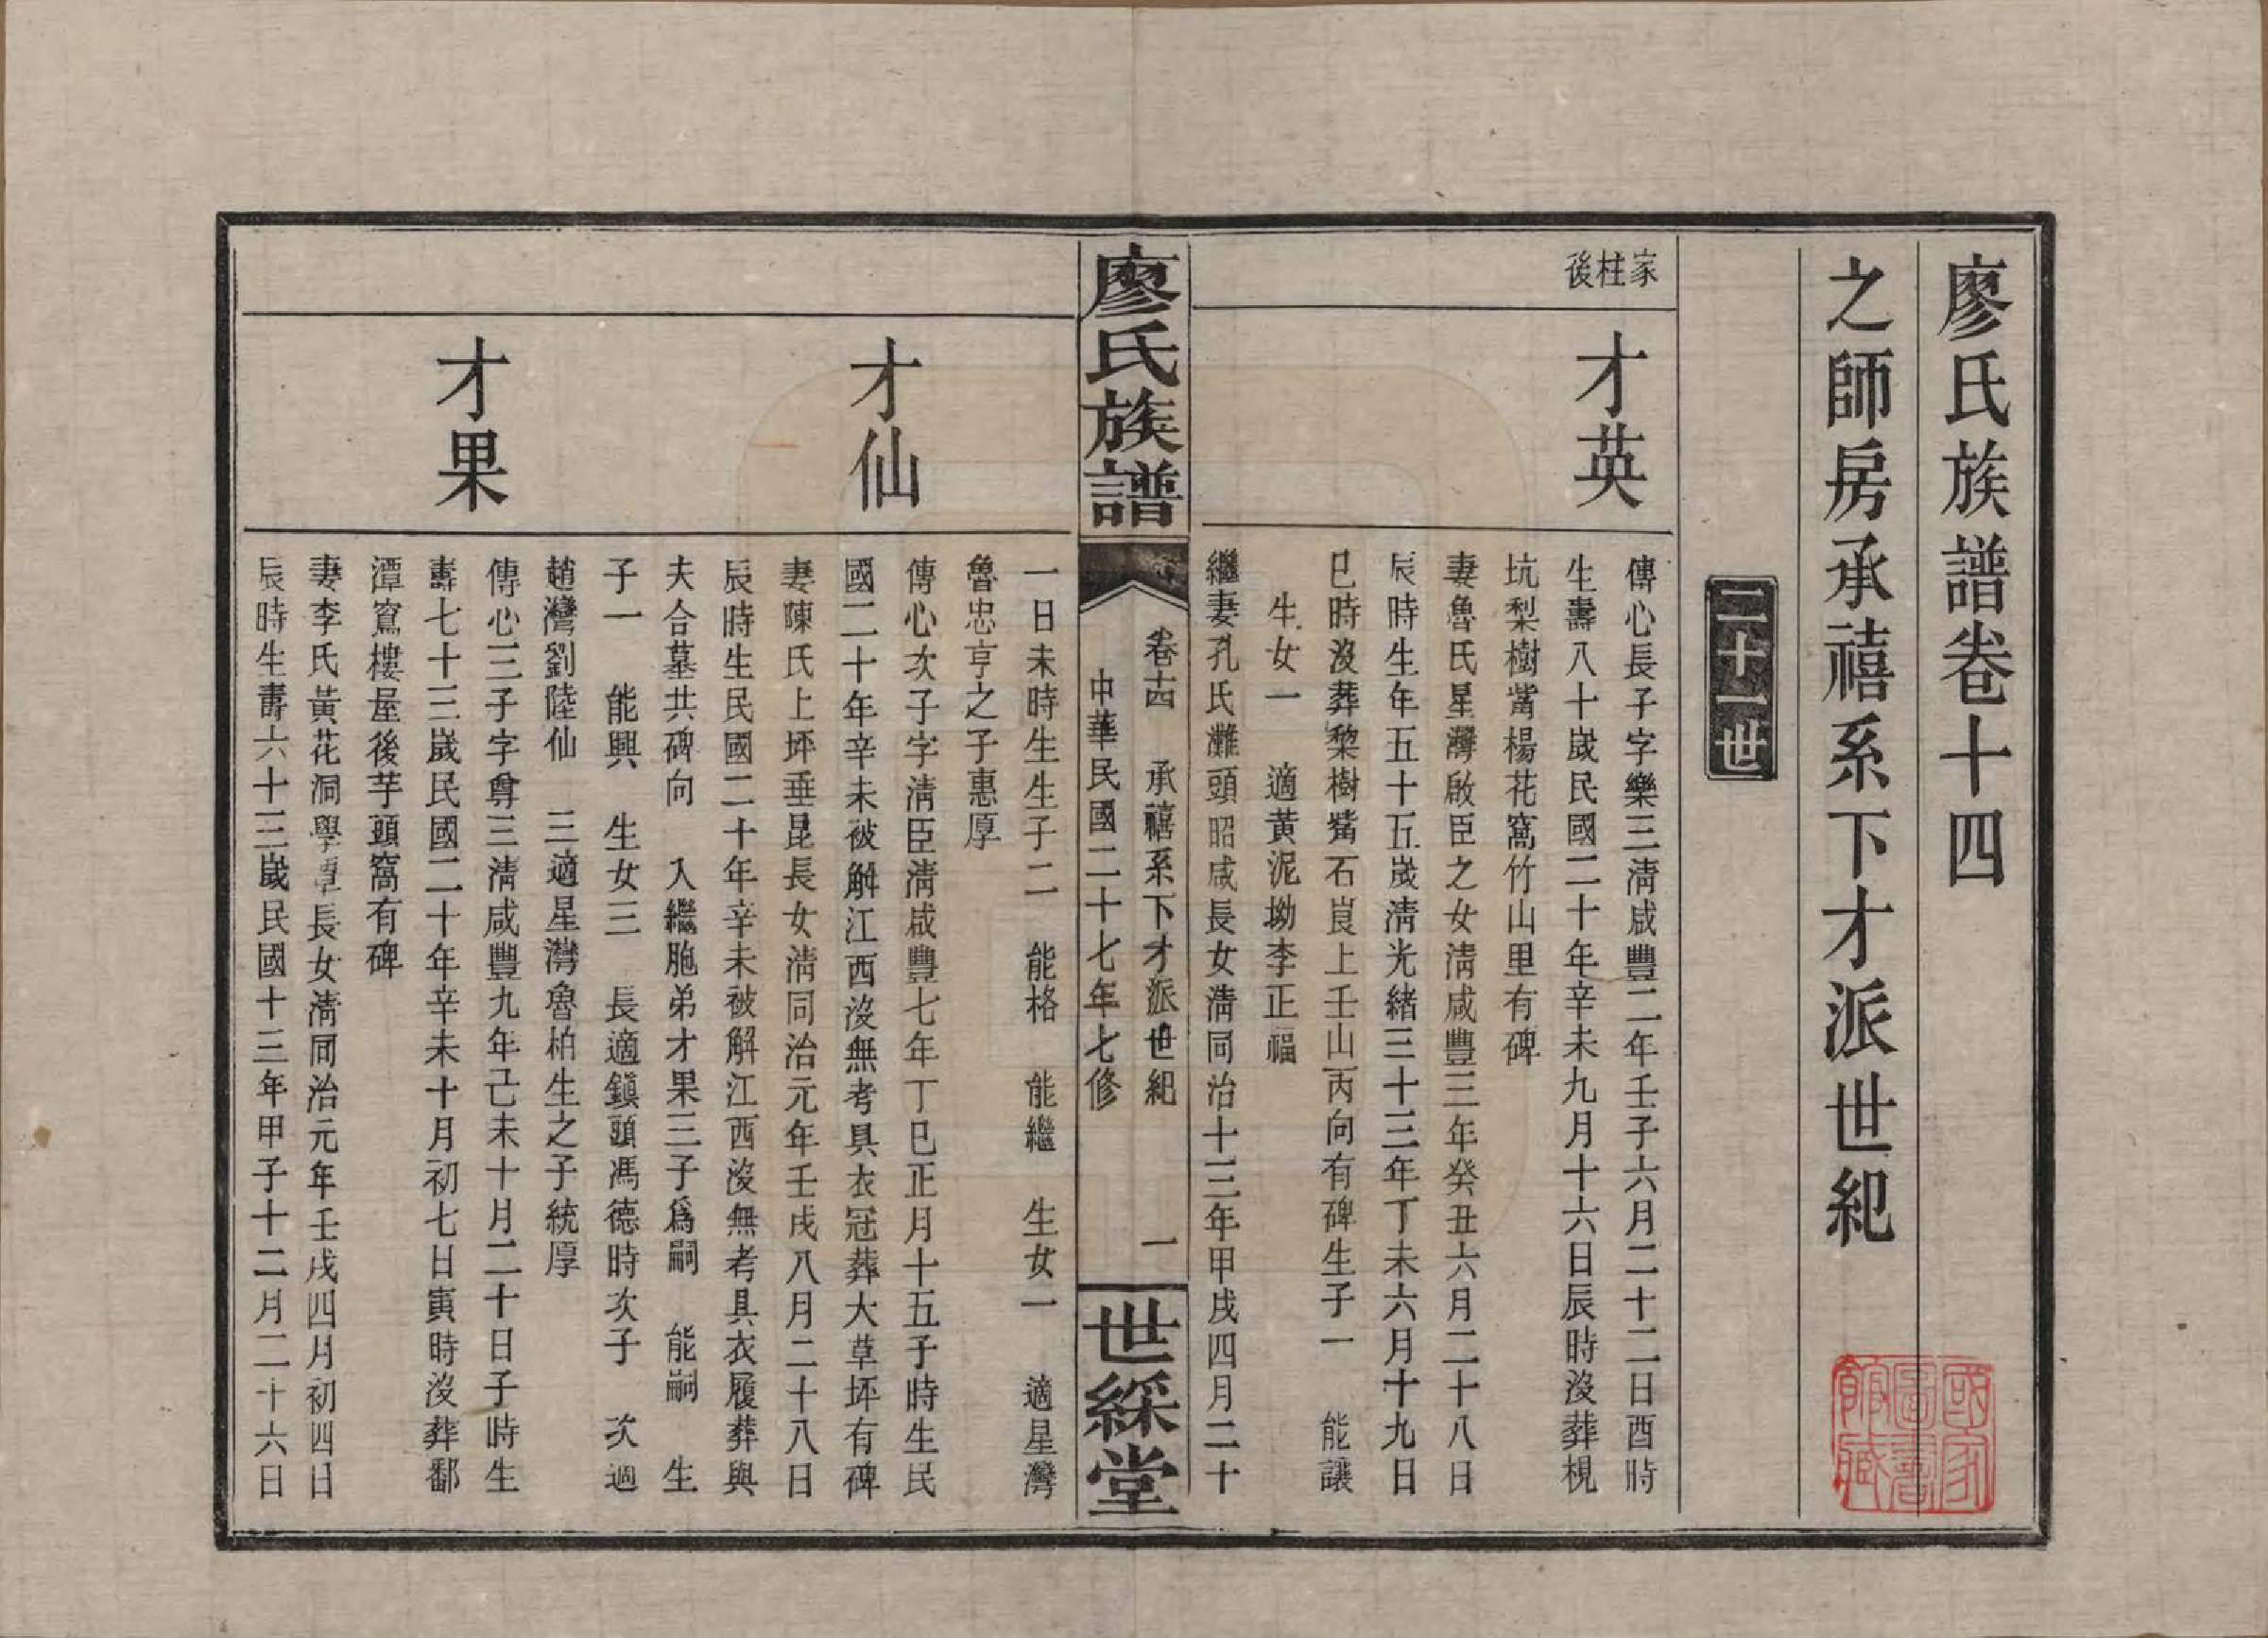 廖氏族譜卷十四
之師房承禧系下才派世紀
二十一世
家柱後
才英
傳心長子字樂三淸咸豐二年壬子六月二十二日酉時
生壽八十歲民國二十年辛未九月十六日辰時沒葬梘
坑梨樹觜楊花窩竹山里有碑
妻魯氏星灣啟臣之女淸咸豐三年癸丑六月二十八日
辰時生年五十五歲淸光緒三十三年丁未六月十九日
巳時沒葬黎樹觜石崀上壬山丙向有碑生子一 能讓
生女一 適黃泥坳李正福
繼妻孔氏灘頭昭咸長女淸同治十三年甲戌四月二十
廖氏族譜
卷十四 承禧系下才派世紀 一
中華民國二十七年七修
世綵堂
一日未時生生子二 能格 能繼 生女一 適星灣
魯忠亨之子惠厚
才仙
傳心次子字淸臣淸咸豐七年丁巳正月十五子時生民
國二十年辛未被解江西沒無考具衣冠葬大草坪有碑
妻陳氏上坪垂昆長女淸同治元年壬戌八月二十八日
辰時生民國二十年辛未被解江西沒無考具衣履葬與
夫合墓共碑向 入繼胞弟才果三子爲嗣 能嗣 生
子一 能興 生女三 長適鎭頭馮德時次子 次適
趙灣劉陸仙 三適星灣魯柏生之子統厚
才果
傳心三子字尊三淸咸豐九年己未十月二十日子時生
壽七十三歲民國二十年辛未十月初七日寅時沒葬鄱
潭窩樓屋後芋頭窩有碑
妻李氏黃花洞學覃長女淸同治元年壬戌四月初四日
辰時生壽六十三歲民國十三年甲子十二月二十六日
國家圖書館藏